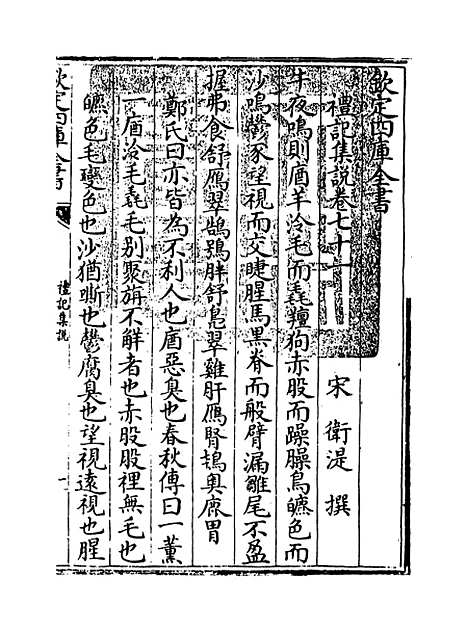 欽定四庫全書
禮記集說卷七十一
宋 衛湜 撰
牛夜鳴則庮羊泠毛而毳羶狗赤股而躁臊鳥皫色而
沙鳴鬱豕望視而交睫腥馬黑脊而般臂漏雛尾不盈
握弗食舒鴈翠鵠鴞胖舒鳧翠雞肝鴈腎鴇奥鹿胃
鄭氏曰亦皆為不利人也庮惡臭也春秋傳曰一薰
一庮泠毛毳毛别聚旃不解者也赤股股裡無毛也
皫色毛變色也沙猶嘶也鬱腐臭也望視逺視也腥
欽定四庫全書
禮記集説
一